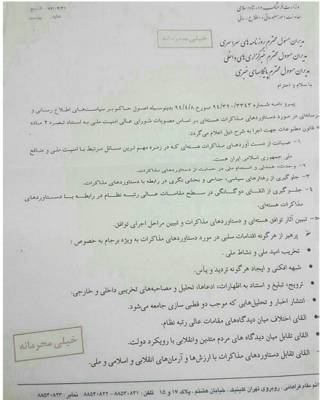 وزارت فرهنگ و ارشاد اسلامی
خیلی محرمانه
مدیران مسؤول محترم روزنامه های سراسری
مدیران مسوول محترم خبرگزاری های داخلی
مدیران مسوول محترم پایگاههای خبری
با سلام و احترام
پیرو نامه شماره ۹۴/۲۹۰/۳۳۴۳ مورخ ۹۴/۴/۸ بدینوسیله اصول حاکم بر سیاست‌های اطلاع رسانی و
رسانه‌ای در مورد دستاوردهای مذاکرات هسته‌ای بر اساس مصوبات شورای عالی امنیت ملی به استناد تبصره ۲ ماده
قانون مطبوعات جهت اجرا به شرح ذیل اعلام می‌گردد.
۱- صیانت از دست آوردهای مذاکرات هسته‌ای که در زمره مهم ترین مسائل مرتبط با امنیت ملی و منافع
ملی جمهوری اسلامی ایران است.
۲- وحدت، همدلی و انسجام ملی در حمایت از دستاوردهای مذاکرات.
۳- جلوگیری از رفتارهای سیاسی، جناحی و بخشی نگری در رابطه با دستاوردهای مذاکرات.
۴- جلوگیری از القای دوگانگی در سطح مقامات عالی رتبه نظام در رابطه با دستاوردهای
مذاکرات هسته‌ای.
- تبیین آثار توافق هسته‌ای و دستاوردهای مذاکرات و تبیین مراحل اجرای توافق.
- پرهیز از هرگونه اقدامات سلبی در مورد دستاوردهای مذاکرات به ویژه برجام به خصوص :
تخریب امید ملی و نشاط ملی .
شبهه افکنی و ایجاد هرگونه تردید و یأس.
ترویج، تبلیغ و استناد به اظهارات، ادعاها، تحلیل و مصاحبه‌های تخریبی داخلی و خارجی.
انتشار اخبار و تحلیل‌هایی که موجب دو قطبی سازی جامعه می‌شود.
القای اختلاف میان دیدگاه‌های مقامات عالی رتبه نظام.
القای تقابل میان دیدگاه های مردم متدین و انقلابی با رویکرد دولت.
القای تقابل دستاوردهای مذاکرات با ارزش‌ها و آرمان‌های انقلابی و اسلامی و ملی.
خیلی محرمانه
قائم مقام فراهانی، روبروی تهران کلینیک، خیابان هشتم، پلاک ۱۷ و ۱۵